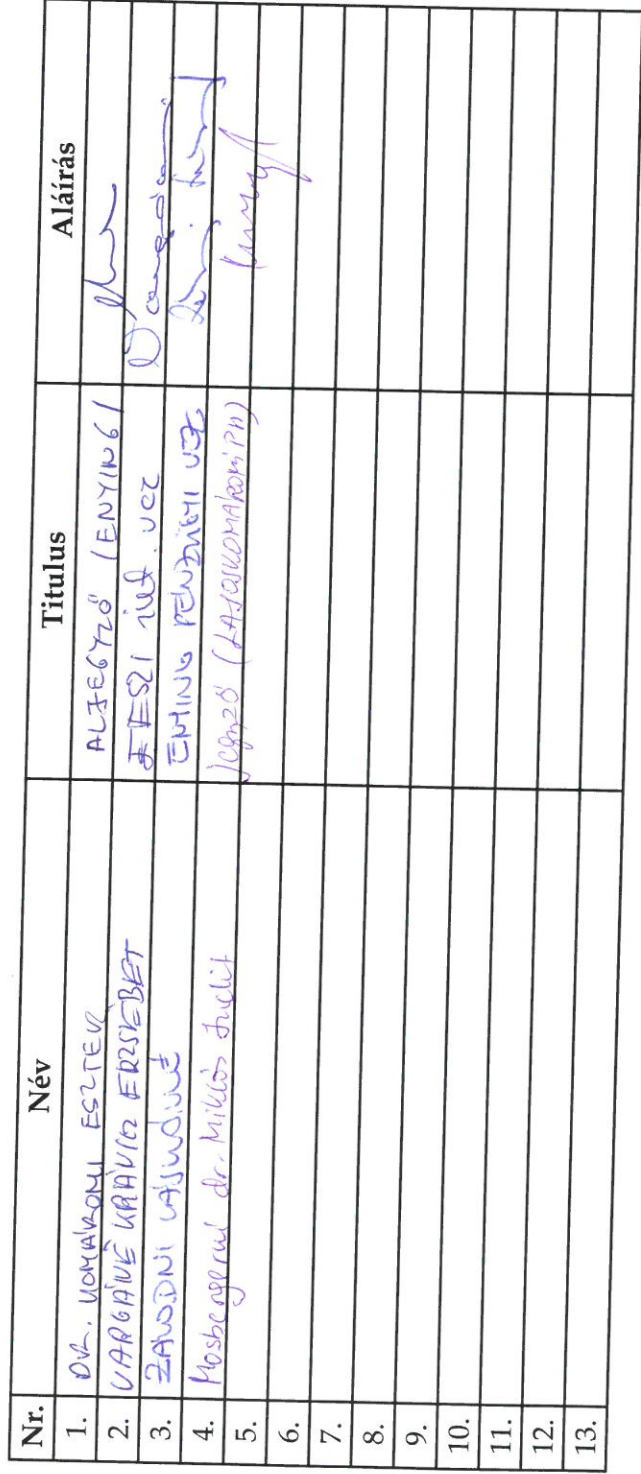 Nr. Név Titulus Aláírás
1. DR. KOMÁROMI ESZTER ALJEGYZŐ (ENYING)
2. VARGÁNÉ KRÁVICZ ERZSÉBET EESZI int. vez
3. ZÁVODNI LÁSZLÓNÉ ENYING PÉNZÜGYI VEZ
4. Mosbergerné dr. Miklós Judit jegyző (LAJOSKOMÁROMI PH)
5.
6.
7.
8.
9.
10.
11.
12.
13.